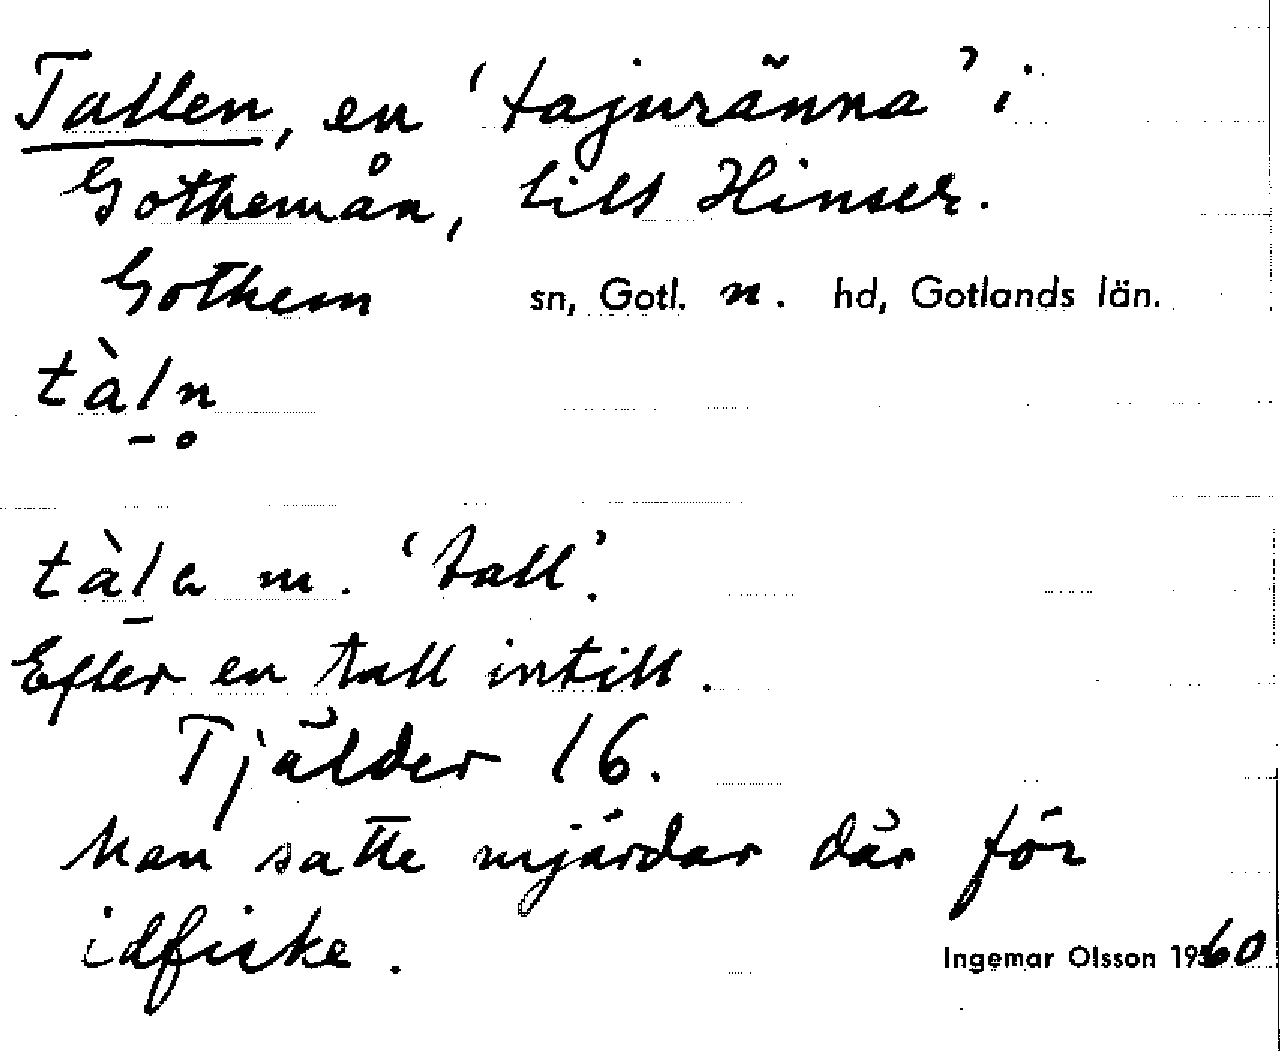 Tallen, en 'tajnränna' i
Gothemån, till Hinser.
Gothem sn, Gotl. n. hd, Gotlands län.
tàl̠n̥
tàl̠a m. 'tall'.
Efter en tall intill.
Tjälder 16.
Man satte mjärdar där för
idfiske.
Ingemar Olsson 1960